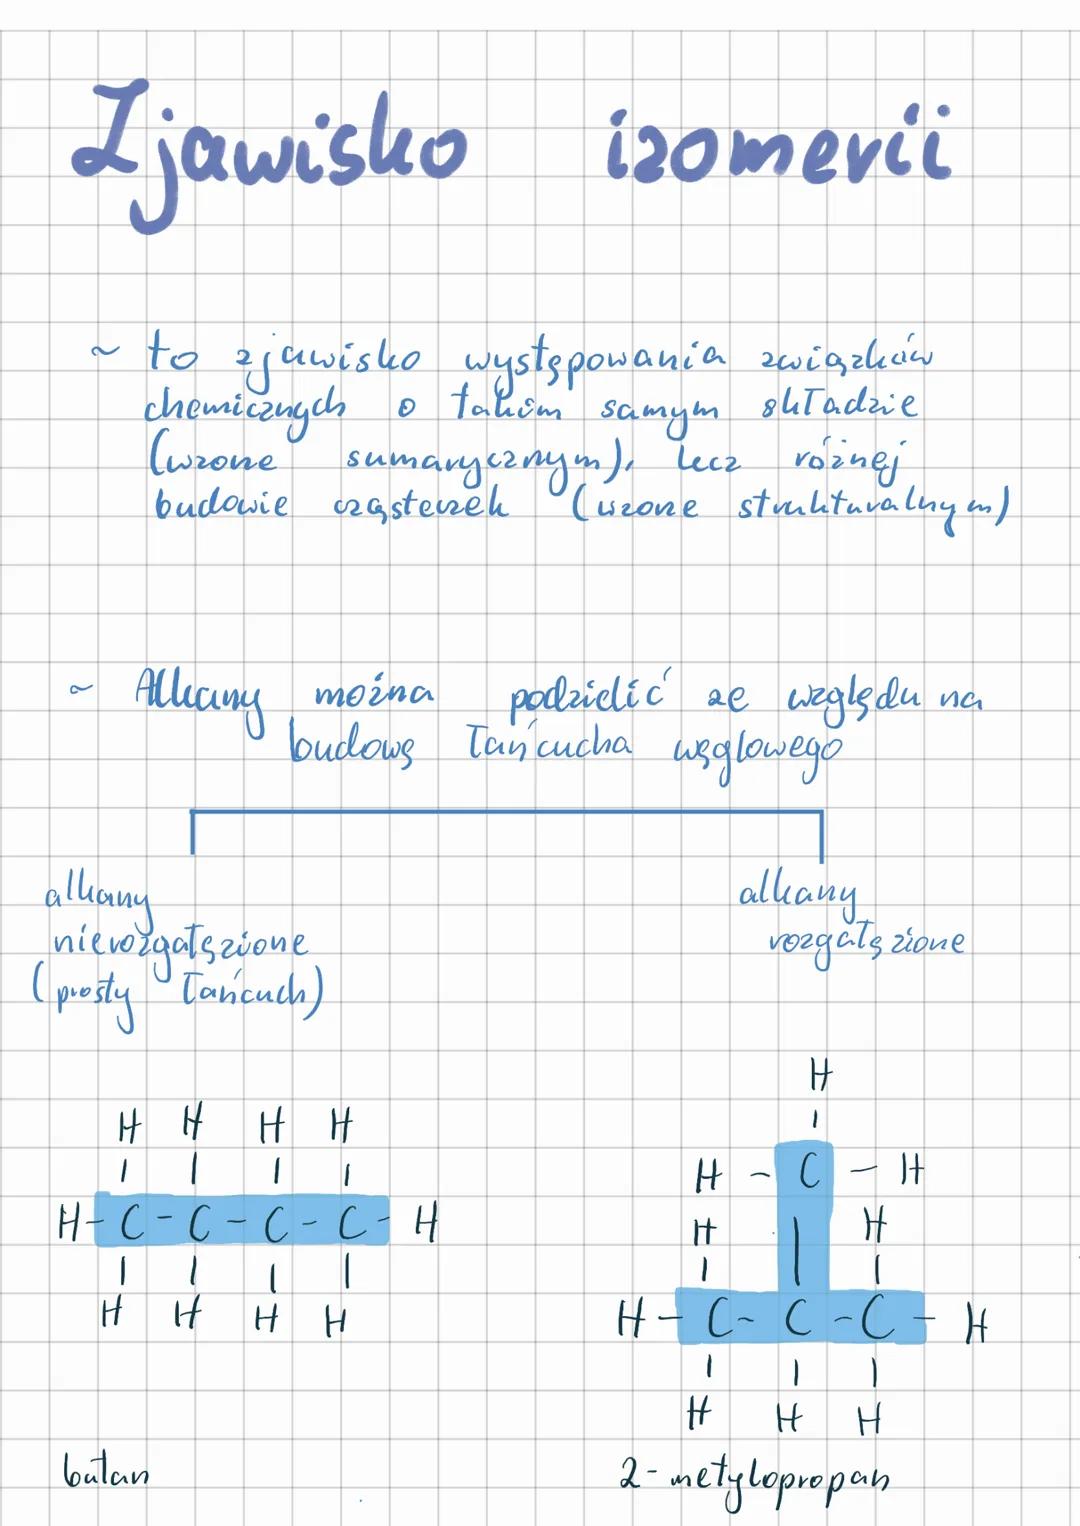 Zjawisko izomerii
~ to zjawisko występowania związków
chemicznych o takim samym składzie
(wzorze sumarycznym), lecz różnej
budowie cząsteczek (wzorze strukturalnym)
~ Alkany można podzielić ze względu na
budowę łańcucha węglowego
alkany
nierozgałęzione
(prosty łańcuch)
alkany
rozgałęzione
H H H H
| | | |
H-C-C-C-C-H
| | | |
H H H H
butan
H
|
H - C - H
H | H
| |
H-C-C-C-H
| | |
H H H
2-metylopropan